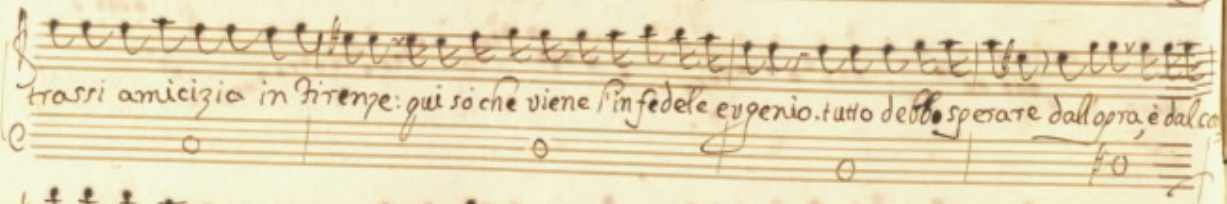 trassi amicizia in Firenze: qui sò che viene l'infedele eugenio. tutto debbo sperare dall opra, è dal co